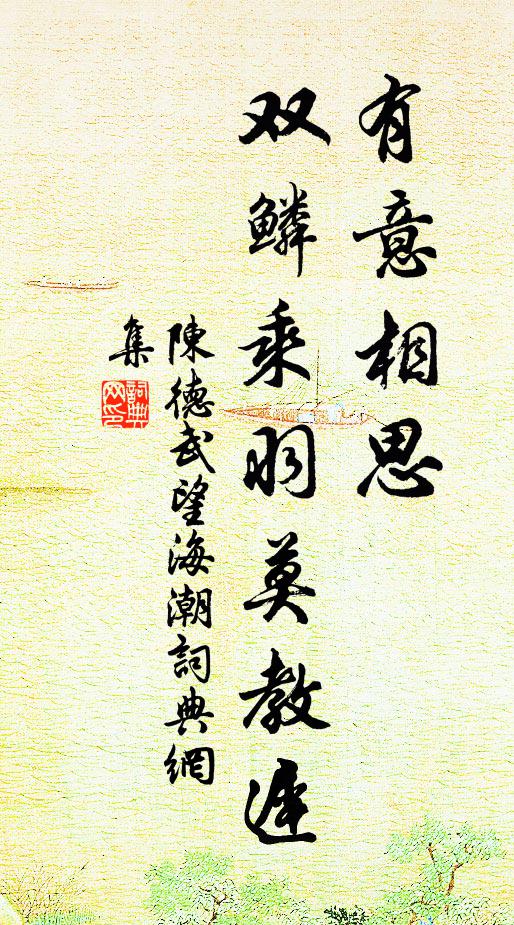 有意相思
双鳞乘羽莫教遲
陳德武望海潮詞典網
集
詞典
网印